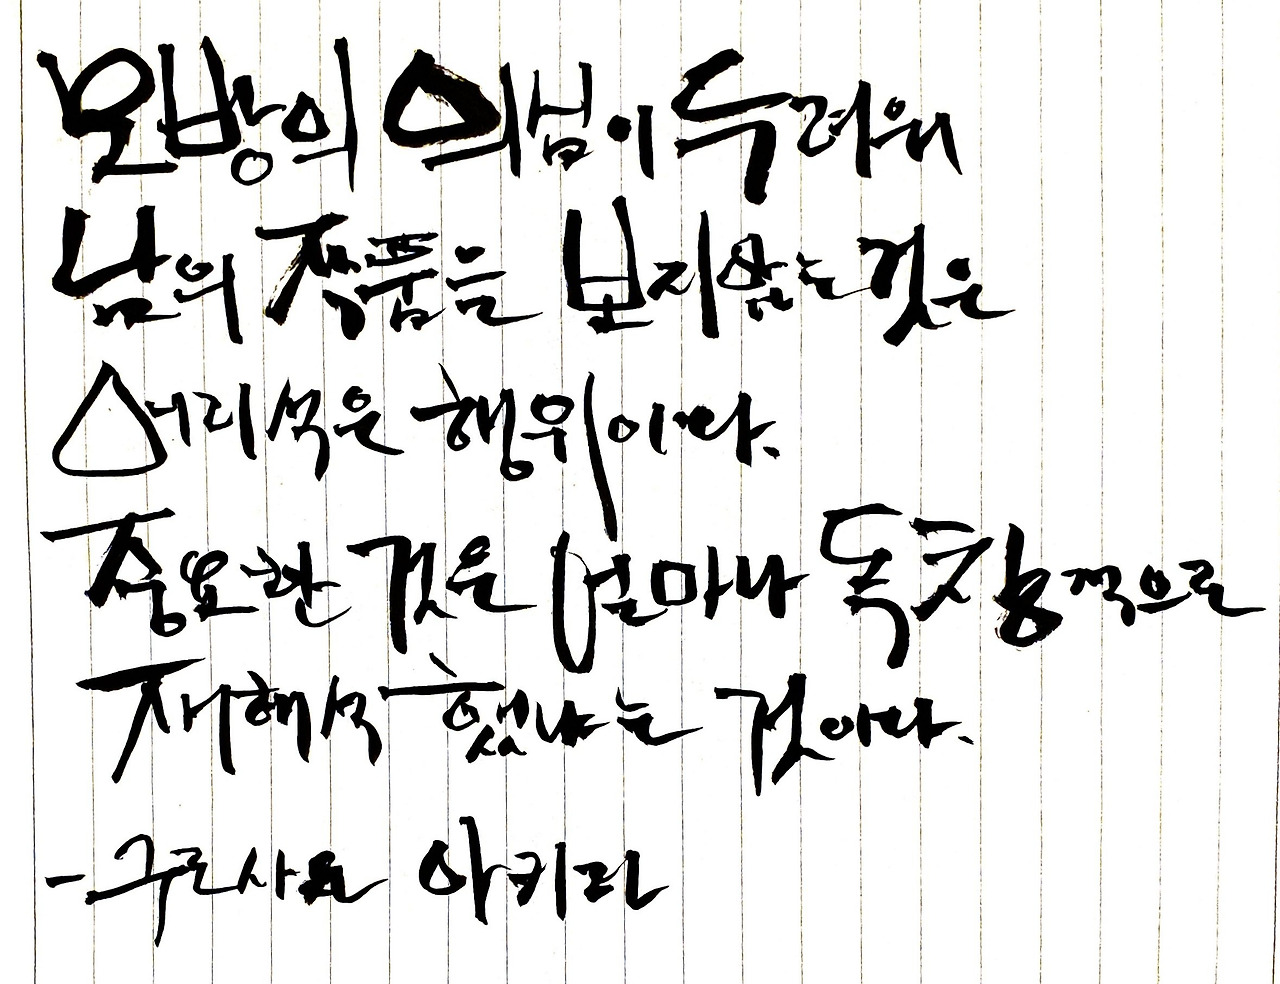 모방의 의심이 두려워
남의 작품을 보지않는 것은
어리석은 행위이다.
중요한 것은 얼마나 독창적으로
재해석 했냐는 것이다.
- 구로사와 아키라